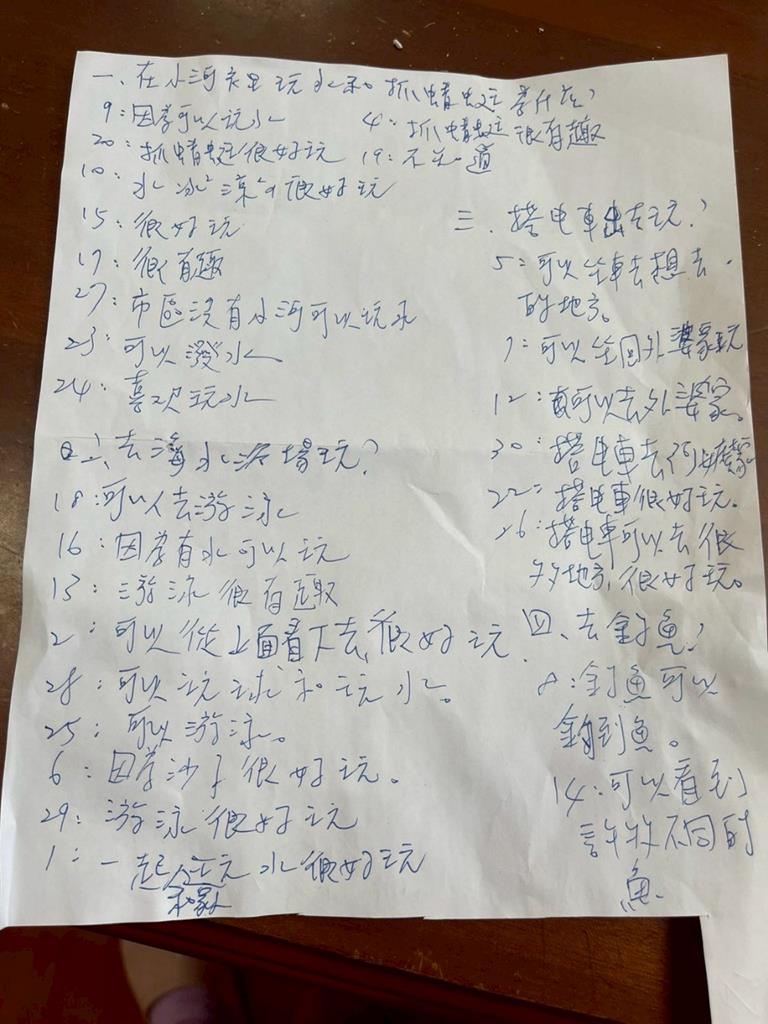 一、在小河裡玩水和抓蜻蜓為什麼?
9:因為可以玩水
4:抓蜻蜓很有趣
20:抓蜻蜓很好玩
19:不知道
10:水冰冰涼涼的很好玩
15:很好玩
17:很有趣
27:市區沒有小河可以玩水
23:可以潑水
24:喜歡玩水
二、去海水浴場玩?
18:可以去游泳
16:因為有水可以玩
13:游泳很有趣
2:可以從上面看下去,很好玩
28:可以玩球和玩水。
25:可以游泳。
6:因為沙子很好玩。
29:游泳很好玩
1:一起玩水很好玩
和家人
三、搭電車出去玩?
5:可以坐車去想去
的地方。
7:可以坐回外婆家玩
12:可以去外婆家。
30:搭電車去阿嬤家
22:搭電車很好玩。
26:搭電車可以去很
多地方,很好玩。
四、去釣魚?
8:釣魚可以
釣到魚。
14:可以看到
許多不同的
魚